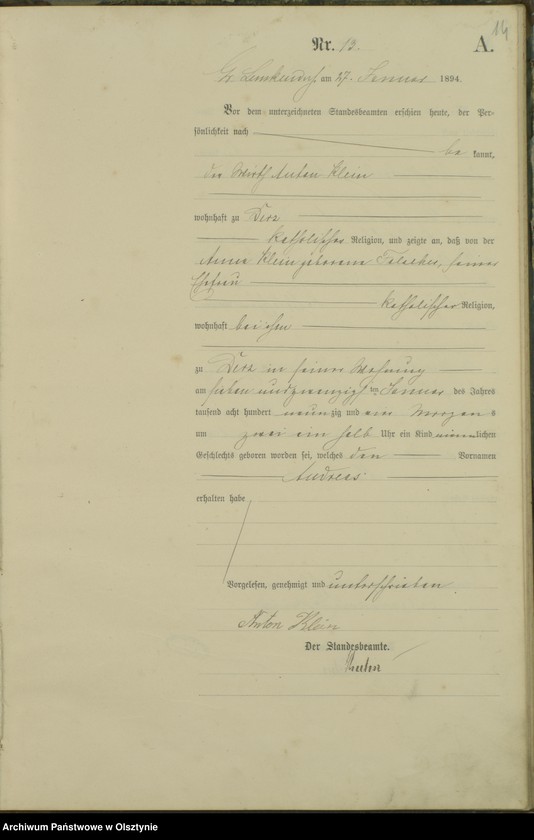 14
Nr. 12. A.
Gr. Lemkendorf am 27. Januar 1894.
Vor dem unterzeichneten Standesbeamten erschien heute, der Per-
sönlichkeit nach
be kannt,
der Wirth Anton Klein
wohnhaft zu Derz
katholischer Religion, und zeigte an, daß von der
Anna Klein geborene seiner
Ehefrau
katholischer Religion,
wohnhaft bei ihm
zu Derz in seiner Wohnung
am sieben und zwanzigsten Januar des Jahres
tausend acht hundert neunzig und vier Morgens
um zwei ein halb Uhr ein Kind männlichen
Geschlechts geboren worden sei, welches den Vornamen
Andreas
erhalten habe
Vorgelesen, genehmigt und unterschrieben
Anton Klein
Der Standesbeamte.
Archiwum Państwowe w Olsztynie